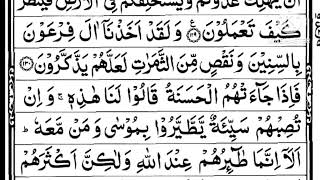 اَنْ يُّهْلِكَ عَدُوَّكُمْ وَيَسْتَخْلِفَكُمْ فِى الْاَرْضِ فَيَنْظُرَ
كَيْفَ تَعْمَلُوْنَ ﴿۱۲۹﴾ وَلَقَدْ اَخَذْنَاۤ اٰلَ فِرْعَوْنَ
بِالسِّنِيْنَ وَنَقْصٍ مِّنَ الثَّمَرٰتِ لَعَلَّهُمْ يَذَّكَّرُوْنَ ﴿۱۳۰﴾
فَاِذَا جَآءَتْهُمُ الْحَسَنَةُ قَالُوْا لَنَا هٰذِهٖ ۚ وَاِنْ
تُصِبْهُمْ سَيِّئَةٌ يَّطَّيَّرُوْا بِمُوْسٰى وَمَنْ مَّعَهٗ ؕ
اَلَاۤ اِنَّمَا طٰٓئِرُهُمْ عِنْدَ اللّٰهِ وَلٰكِنَّ اَكْثَرَهُمْ